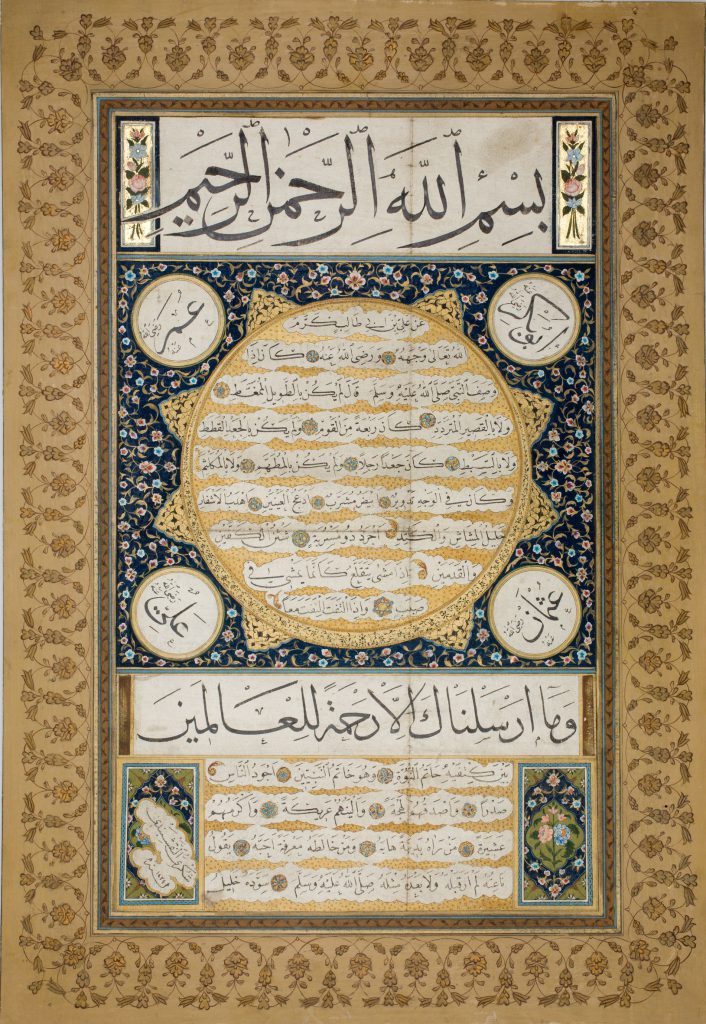 بِسْمِ اللهِ الرَّحْمٰنِ الرَّحِيمِ
ابو بكر رضى الله عنه
عمر رضى الله عنه
عن على بن ابى طالب كرم
الله تعالى وجهه ورضى الله عنه كان اذا
وصف النبى صلى الله عليه وسلم قال لم يكن بالطويل الممغط
ولا بالقصير المتردد كان ربعة من القوم ولم يكن بالجعد القطط
ولا بالسبط كان جعدا رجلا ولم يكن بالمطهم ولا بالمكلثم
وكان فى الوجه تدوير ابيض مشرب ادعج العينين اهدب الاشفار
جليل المشاش والكتد اجرد ذو مسربة شثن الكفين
والقدمين اذا مشى تقلع كانما يمشى فى
صبب واذا التفت التفت معا
عثمان رضى الله عنه
على رضى الله عنه
وَمَا اَرْسَلْنَاكَ اِلَّا رَحْمَةً لِلْعَالَمِينَ
بين كتفيه خاتم النبوة وهو خاتم النبيين اجود الناس
صدرا واصدقهم لهجة والينهم عريكة واكرمهم
عشيرة من رآه بديهة هابه ومن خالطه معرفة احبه يقول
ناعته لم ار قبله ولا بعده مثله صلى الله عليه وسلم سوده خليل